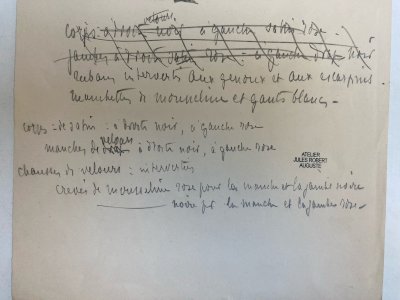 velours
corps à droite noir, à gauche satin rose -
jambes à droite satin rose - à gauche drap noir
rubans intervertis aux genoux et aux escarpins
manchettes de mousseline et gants blancs -
corps : de satin : à droite noir, à gauche rose
velours
manches de à droite noir, à gauche rose
chausses de velours : interverties
crevés de mousseline rose pour les manche et la jambe noire
noire pr la manche et la jambe rose -
ATELIER
JULES ROBERT
AUGUSTE